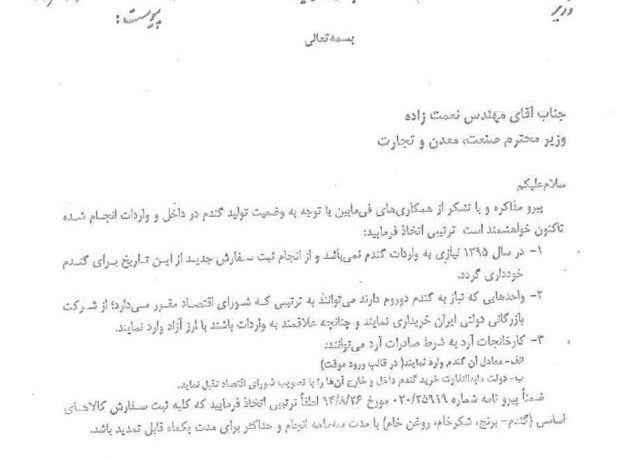 وزیر
پیوست:
بسمه تعالی
جناب آقای مهندس نعمت زاده
وزیر محترم صنعت، معدن و تجارت
سلام علیکم
پیرو مذاکره و با تشکر از همکاری‌های فی‌مابین با توجه به وضعیت تولید گندم در داخل و واردات انجام شده
تاکنون خواهشمند است ترتیبی اتخاذ فرمایید:
۱- در سال ۱۳۹۵ نیازی به واردات گندم نمی‌باشد و از انجام ثبت سفارش جدید از این تاریخ برای گندم
خودداری گردد.
۲- واحدهایی که نیاز به گندم دوروم دارند می‌توانند به ترتیبی که شورای اقتصاد مقرر می‌دارد؛ از شرکت
بازرگانی دولتی ایران خریداری نمایند و چنانچه علاقمند به واردات باشند با ارز آزاد وارد نمایند.
۳- کارخانجات آرد به شرط صادرات آرد می‌توانند:
الف- معادل آن گندم وارد نمایند( در قالب ورود موقت)
ب- دولت مابه‌التفاوت خرید گندم داخل و خارج آن‌ها را با تصویب شورای اقتصاد تقبل نماید.
ضمناً پیرو نامه شماره ۰۲۰/۲۵۹۱۹ مورخ ۹۴/۸/۲۶ لطفاً ترتیبی اتخاذ فرمایید که کلیه ثبت سفارش کالاهای
اساسی (گندم- برنج، شکرخام، روغن خام) با مدت سه‌ماهه انجام و حداکثر برای مدت یکماه قابل تمدید باشد.